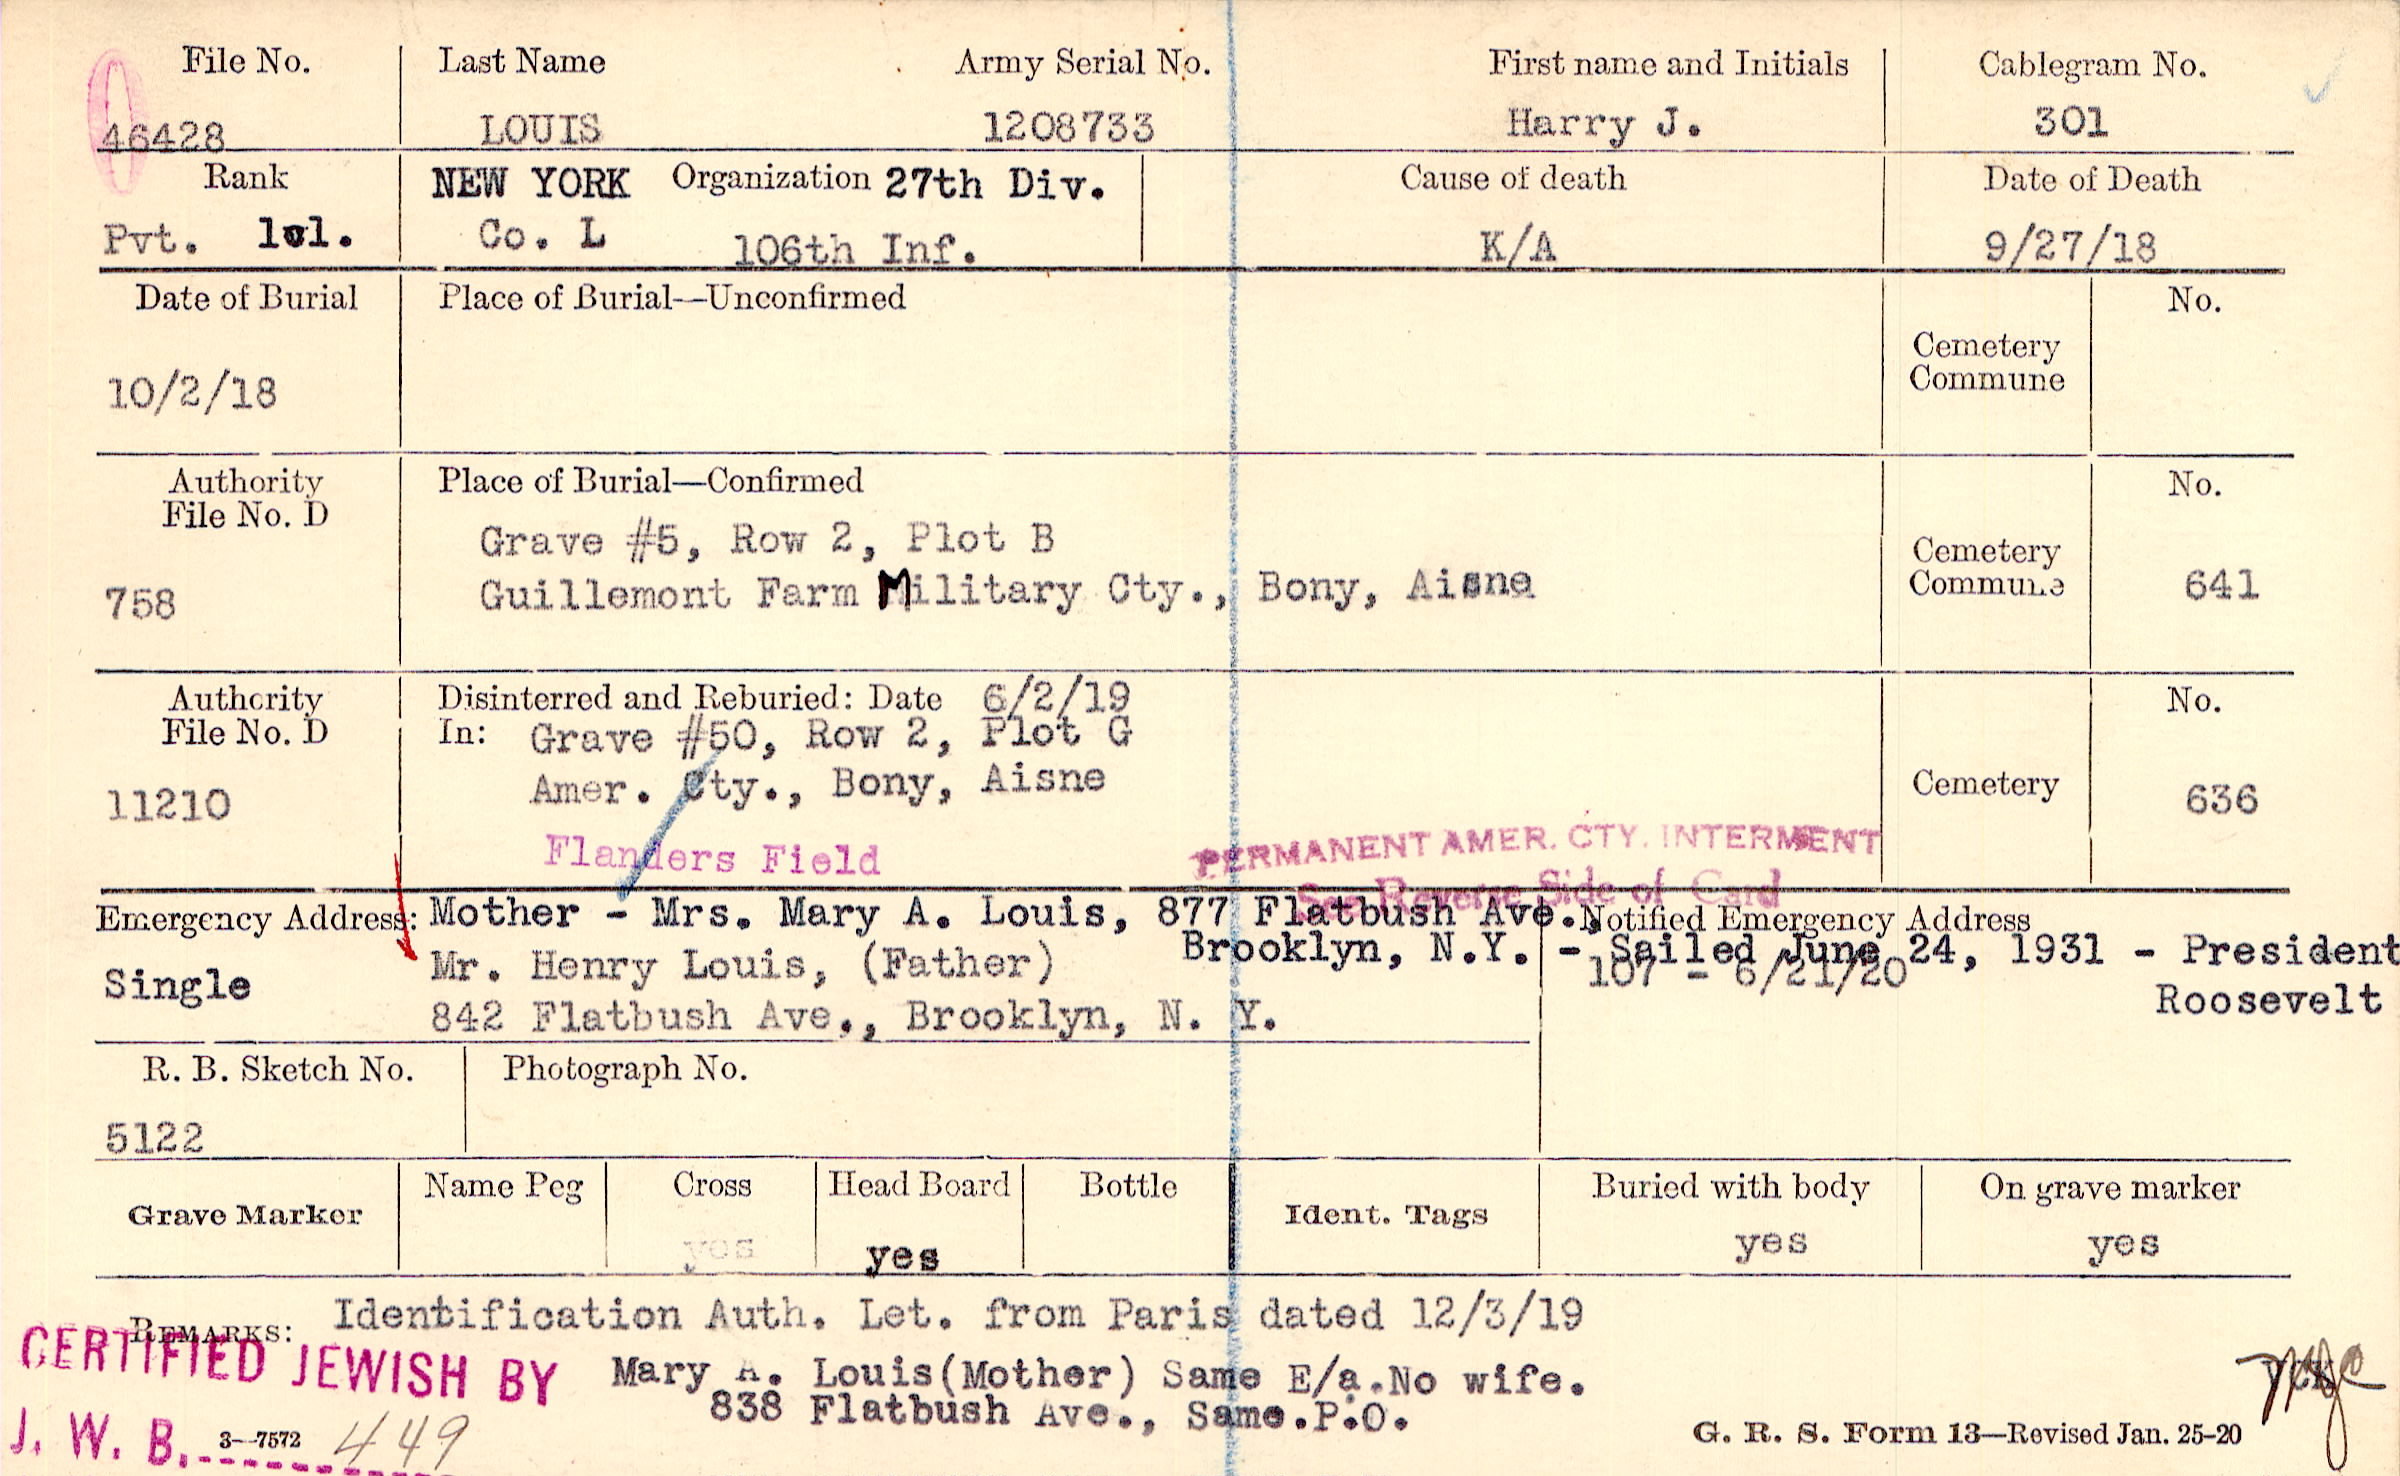 File No. Last Name Army Serial No. First name and Initials Cablegram No.
46428 LOUIS 1208733 Harry J. 301
Rank NEW YORK Organization 27th Div. Cause of death Date of Death
Pvt. 1cl. Co. L 106th Inf. K/A 9/27/18
Date of Burial Place of Burial—Unconfirmed No.
Cemetery
Commune
10/2/18
Authority Place of Burial—Confirmed No.
File No. D
Grave #5, Row 2, Plot B
Cemetery
758 Guillemont Farm Military Cty., Bony, Aisne Commune 641
Authority Disinterred and Reburied: Date 6/2/19 No.
File No. D In: Grave #50, Row 2, Plot G
11210 Amer. Cty., Bony, Aisne Cemetery 636
Flanders Field PERMANENT AMER. CTY. INTERMENT
See Reverse Side of Card
Emergency Address: Mother - Mrs. Mary A. Louis, 877 Flatbush Ave., Notified Emergency Address
Brooklyn, N.Y. - Sailed June 24, 1931 - President
Roosevelt
Single Mr. Henry Louis, (Father) 107 - 6/21/20
842 Flatbush Ave., Brooklyn, N. Y.
R. B. Sketch No. Photograph No.
5122
Grave Marker Name Peg Cross Head Board Bottle Ident. Tags Buried with body On grave marker
yes yes yes yes
REMARKS: Identification Auth. Let. from Paris dated 12/3/19
CERTIFIED JEWISH BY Mary A. Louis(Mother) Same E/a.No wife.
838 Flatbush Ave., Same.P.O.
J. W. B. 449
3—7572 G. R. S. Form 13—Revised Jan. 25-20